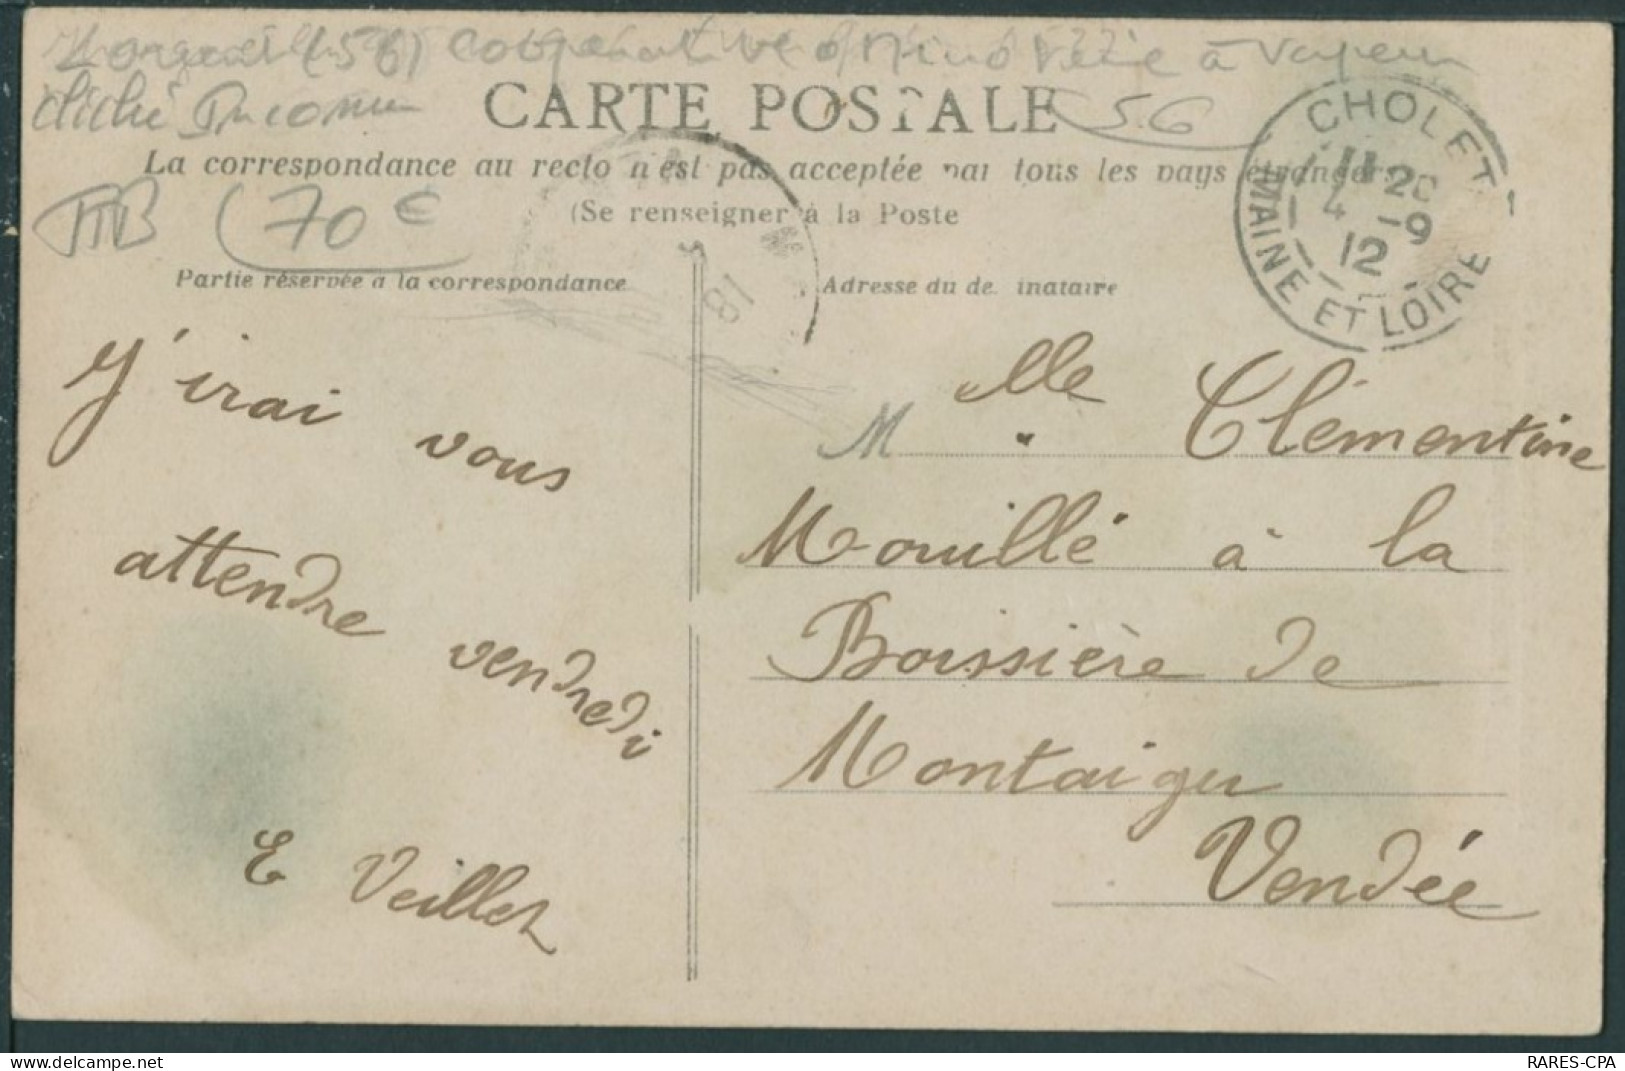 (56) Coopérative à Vapeur
cliché Inconnu
CARTE POSTALE
S.G
La correspondance au recto n'est pas acceptée par tous les pays étrangers
TTB
70 €
(Se renseigner à la Poste
Partie réservée a la correspondance
Adresse du de inataire
CHOLET
11 20
4 -9
12
MAINE ET LOIRE
18
J'irai vous
attendre vendredi
E Veillet
M elle Clémentine
Mouillé à la
Boissière de
Montaigu
Vendée
RARES-CPA